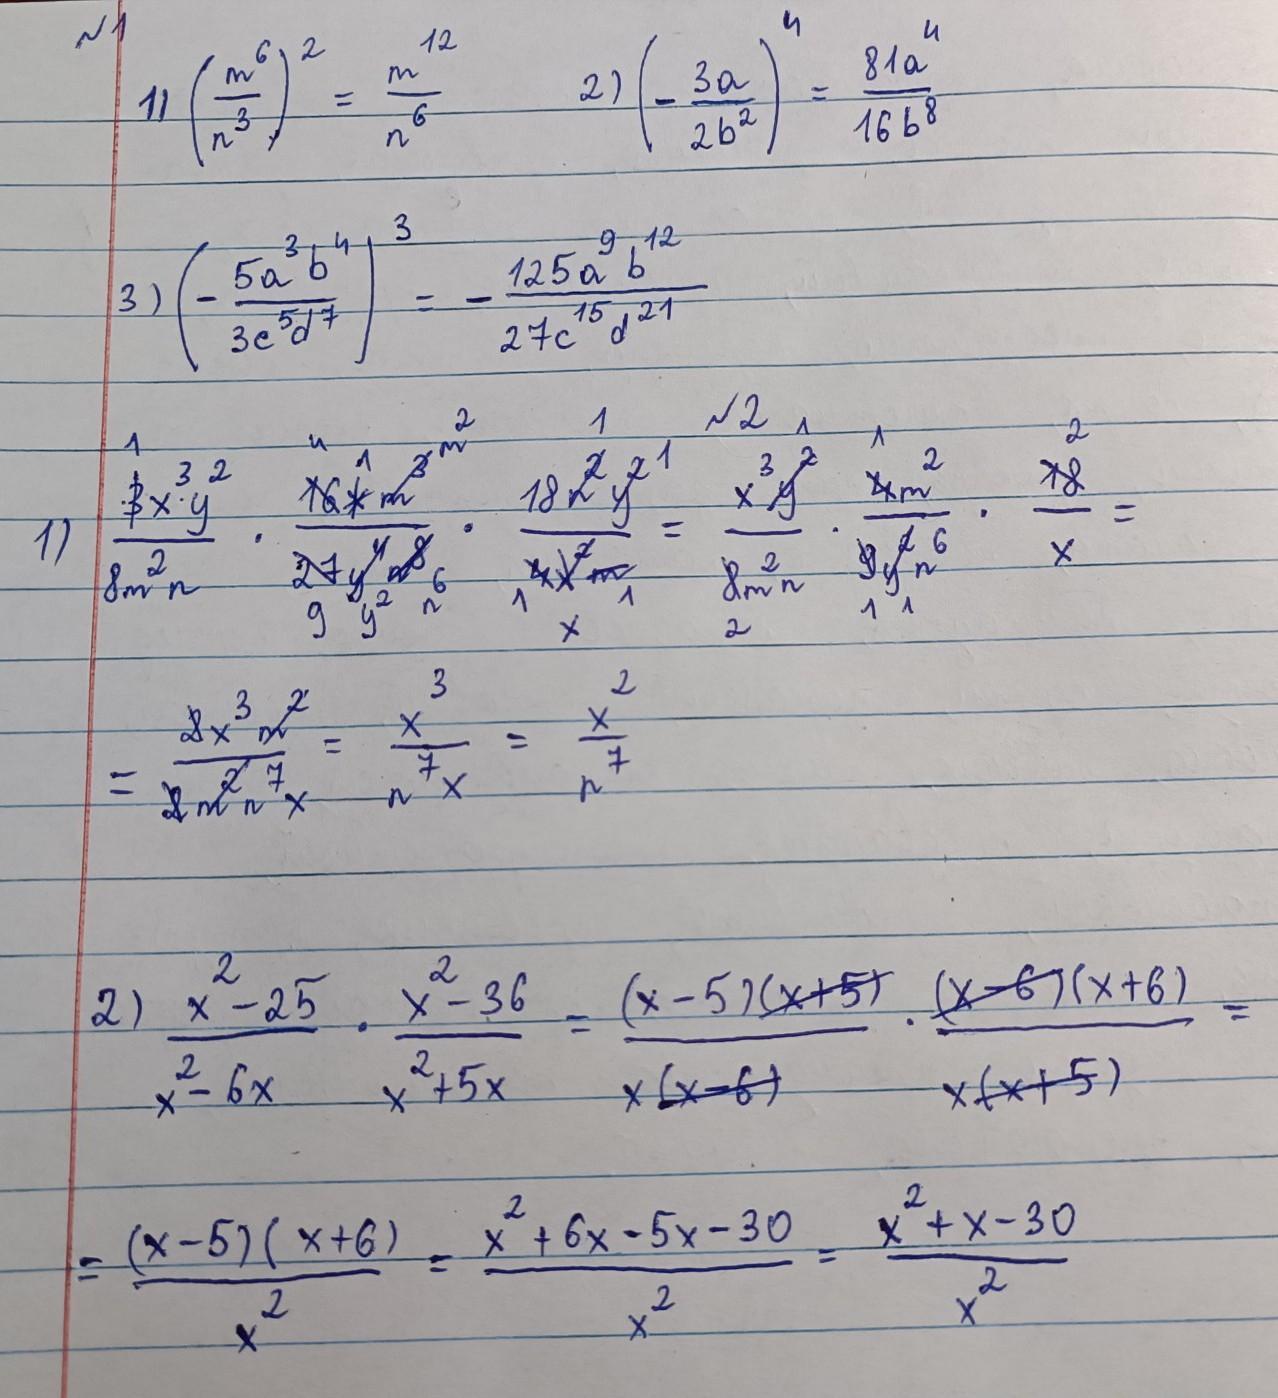 №1
1) (m⁶/n³)² = m¹²/n⁶ 2) (-3a/2b²)⁴ = 81a⁴/16b⁸
3) (-5a³b⁴/3c⁵d⁷)³ = -125a⁹b¹²/27c¹⁵d²¹
№2
1) 3x³y²/8m²n · 16xm³/27y⁴n⁸ · 18n²y²/4x²m = x³y²/8m²n · 4m²/9y²n⁶ · 18/x =
= 2x³m²/2m²n⁷x = x³/n⁷x = x²/n⁷
2) x²-25/x²-6x · x²-36/x²+5x = (x-5)(x+5)/x(x-6) · (x-6)(x+6)/x(x+5) =
= (x-5)(x+6)/x² = x²+6x-5x-30/x² = x²+x-30/x²